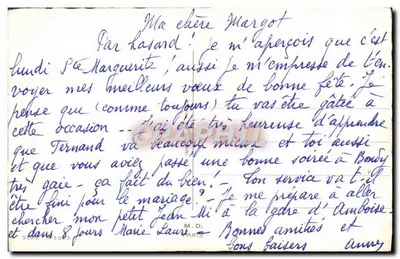 Ma chère Margot
Par hasard ! je m'aperçois que c'est
lundi Ste Marguerite ! aussi je m'empresse de t'en-
voyer mes meilleurs vœux de bonne fête. Je
pense que (comme toujours) tu vas être gâtée à
cette occasion -- J'ai été très heureuse d'apprendre
que Fernand va beaucoup mieux et toi aussi
et que vous aviez passé une bonne soirée à Bondy
très gaie - ça fait du bien ! - Ton service va t-il
être fini pour le mariage ? Je me prépare à aller
chercher mon petit Jean Mi à la gare d'Amboise -
et dans 8 jours Marie Laure - Bonnes amitiés et
bons baisers
M.D.